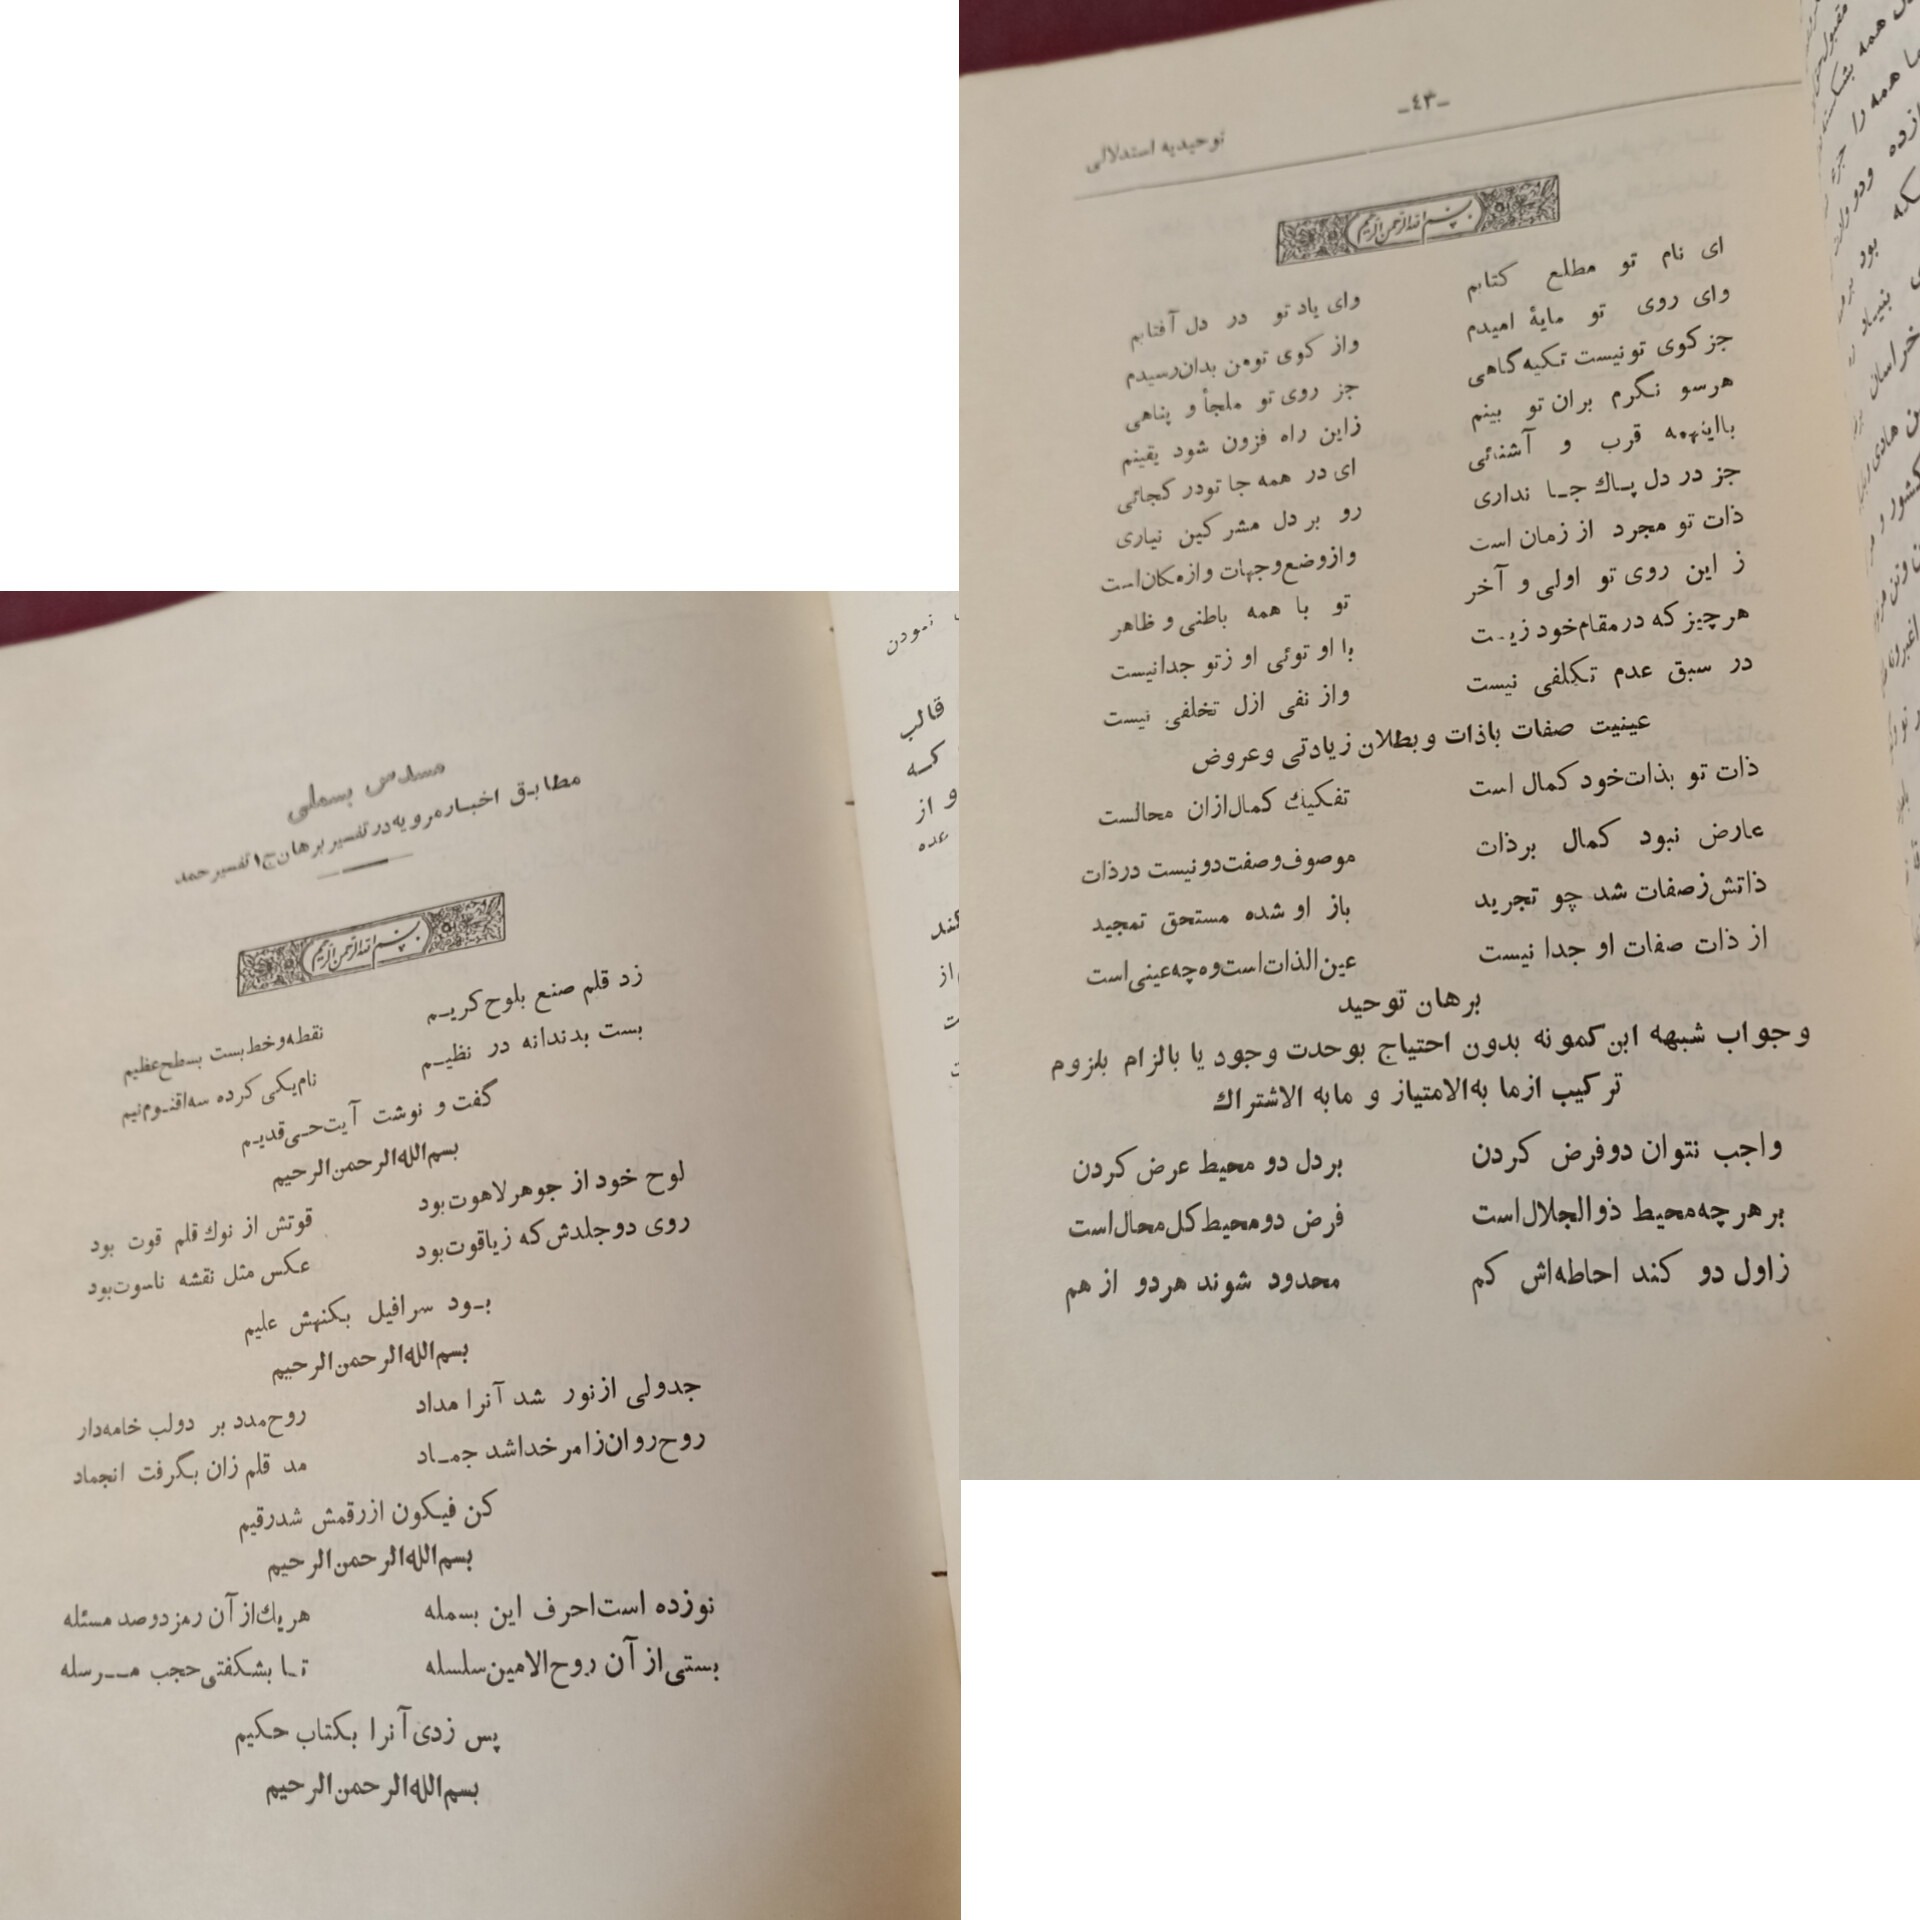 -٤٣-
توحیدیه استدلالی
بسم الله الرحمن الرحیم
ای نام تو مطلع کتابم وای یاد تو در دل آفتابم
وای روی تو مایهٔ امیدم واز کوی تومن بدان‌رسیدم
جز کوی تونیست تکیه‌گاهی جز روی تو ملجأ و پناهی
هرسو نگرم بران تو بینم زاین راه فزون شود یقینم
بااینهمه قرب و آشنائی ای در همه جا تودر کجائی
جز در دل پاك جا نداری رو بر دل مشرکین نیاری
ذات تو مجرد از زمان است وازوضع‌وجهات وازمکان‌است
ز این روی تو اولی و آخر تو با همه باطنی و ظاهر
هرچیز که درمقام‌خود زیست با او توئی او زتو جدانیست
در سبق عدم تکلفی نیست واز نفی ازل تخلفی نیست
عینیت صفات باذات و بطلان زیادتی وعروض
ذات تو بذات‌خود کمال است تفکیك کمال‌ازان محالست
عارض نبود کمال برذات موصوف‌وصفت‌دونیست درذات
ذاتش‌زصفات شد چو تجرید باز او شده مستحق تمجید
از ذات صفات او جدا نیست عین‌الذات‌است‌وه‌چه‌عینی‌است
برهان توحید
و جواب شبهه ابن‌کمونه بدون احتیاج بوحدت وجود یا بالزام بلزوم
ترکیب ازما به‌الامتیاز و مابه الاشتراك
واجب نتوان دوفرض کردن بردل دو محیط عرض کردن
برهرچه‌محیط ذوالجلال‌است فرض دومحیط‌کل‌محال‌است
زاول دو کند احاطه‌اش کم محدود شوند هردو از هم
نبودن
قالب
که
و از
عده
کنند
از
مسدس بسملی
مطابق اخبارمرویه‌درتفسیربرهان‌ج۱تفسیرحمد
بسم الله الرحمن الرحیم
زد قلم صنع بلوح‌کریم نقطه‌وخط‌بست بسطح‌عظیم
بست بدندانه در نظیم نام‌یکی کرده سه‌اقنوم‌نیم
گفت و نوشت آیت‌حی‌قدیم
بسم‌الله‌الرحمن‌الرحیم
لوح خود از جوهرلاهوت‌بود قوتش از نوك قلم قوت بود
روی دوجلدش‌که زیاقوت‌بود عکس مثل نقشه ناسوت‌بود
بود سرافیل بکنهش علیم
بسم‌الله‌الرحمن‌الرحیم
جدولی ازنور شد آنرا مداد روح‌مدد بر دولب خامه‌دار
روح‌روان‌زامرخداشد جماد مد قلم زان بگرفت انجماد
کن فیکون ازرقمش شدرقیم
بسم‌الله‌الرحمن‌الرحیم
نوزده است‌احرف این بسمله هریك‌از آن رمزدوصد مسئله
بستی‌از آن روح‌الامین‌سلسله تا بشکفتی‌حجب مرسله
پس زدی‌آنرا بکتاب حکیم
بسم‌الله‌الرحمن‌الرحیم